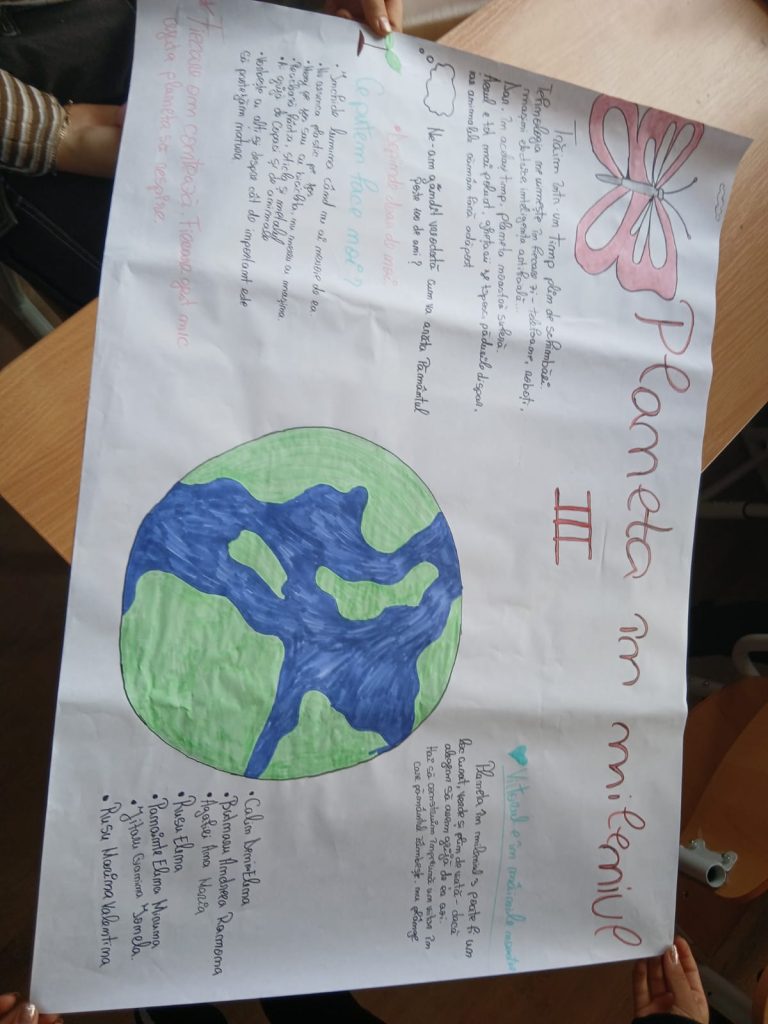 Planeta în mileniul
III
Trăim într-un timp plin de schimbări.
Tehnologia ne uimește în fiecare zi - telefoane, roboți,
mașini electrice, inteligența artificială...
Dar, în același timp, planeta noastră suferă.
Aerul e tot mai poluat, ghețarii se topesc, pădurile dispar,
iar animalele rămân fără adăpost
Ne-am gândit vreodată cum va arăta Pământul
peste 100 de ani?
• Depinde doar de noi
Ce putem face noi?
• Închide lumina când nu ai nevoie de ea.
• Nu arunca plastic pe jos
• Mergi pe jos sau cu bicicleta, nu mereu cu mașina
• Reciclează hârtia, sticla și metalul
• Ai grijă de copaci și de animale
• Vorbește cu alții și despre cât de important este
să protejăm natura
Fiecare om contează. Fiecare gest mic
ajută planeta să respire
Viitorul e în mâinile noastre
Planeta în mileniul 3 poate fi un
loc curat, verde și plin de viață - dacă
alegem să avem grijă de ea azi.
Hai să construim împreună un viitor în
care pământul zâmbește, nu plânge
• Calin Elena
• Bușmaru Andreea Ramona
• Agafiei Ana Maria
• Rusu Elena
• Pamainte Elena Miruna
• Jitaru Ionela
• Rusu Marina Valentina